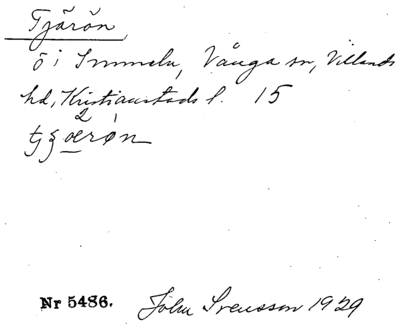 Tjärön
ö i Immeln, Vånga sn, Villands
hd, Kristianstads l. 15
2 1
Nr 5486. John Svensson 1929